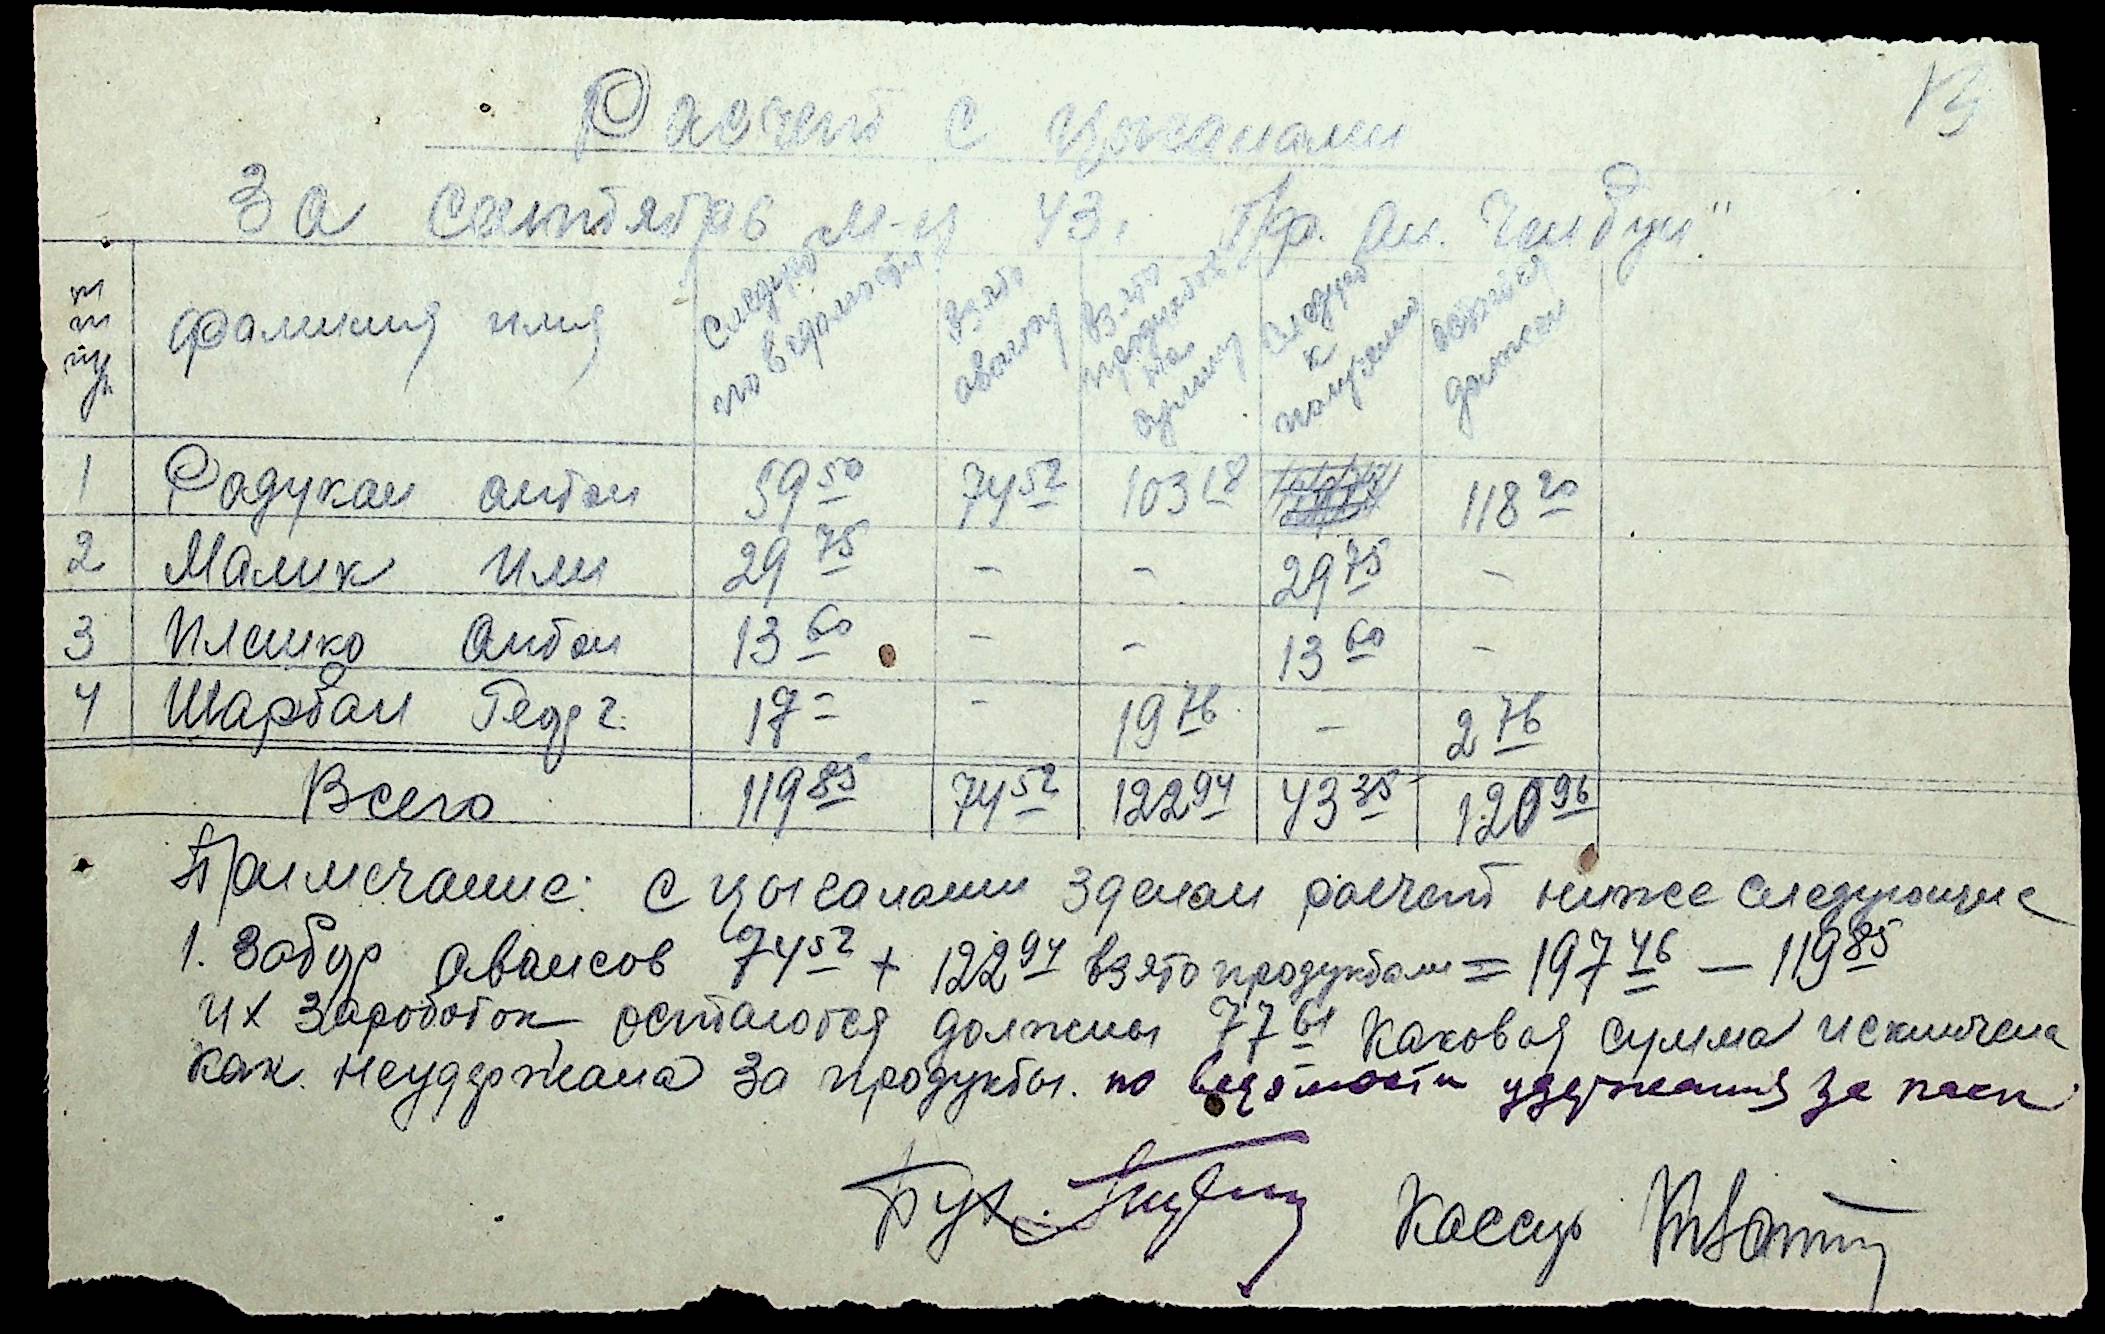 13
Расчет с цыганами
За сентябрь м-ц 43,
фамилия имя Следует по ведомости Взято авансу Взято продуктов на сумму Следует к получению остается должен
1 Радукан Антон 59 50 74 52 103 18 118 20
2 Малик Или 29 75 - - 29 75 -
3 Илешко Антон 13 60 - - 13 60 -
4 Шарбан Геор г. 17 = - 19 76 - 2 76
Всего 119 85 74 52 122 94 43 35 120 96
Примечание: с цыганами зделан расчет ниже следующие
1. Забор авансов 74 52 + 122 94 взято продуктами = 197 46 — 119 85
их заработок остаются должны 77 61 каковая сумма исключена
как неудержана за продукты. по ведомости удержания за паек
Бух. Кассир